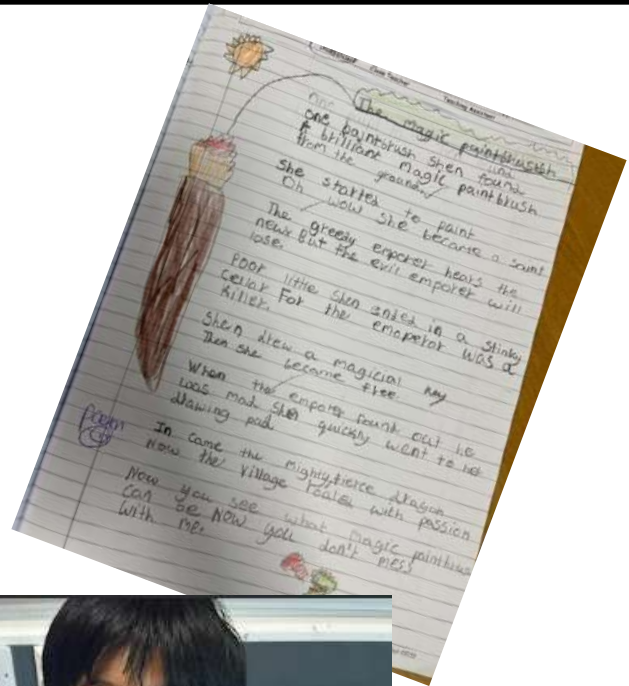 Class Teacher
Teaching Assistant
The magic paintbrush
one paintbrush shen found
A brilliant magic paintbrush
from the ground
She started to paint
Oh wow she became a saint
The greedy emporer hears the
news But the evil emporer will
lose.
Poor little Shen ended in a stinky
cellar For the emoperor was a
killer.
Shen drew a magicial key
Then she became free
When the emporer found out he
was mad Shen quickly went to her
drawing pad
In came the mighty,fierce dragon
Now the village roared with passion
Now you see what magic paintbrush
can be Now you don't mess
with me.